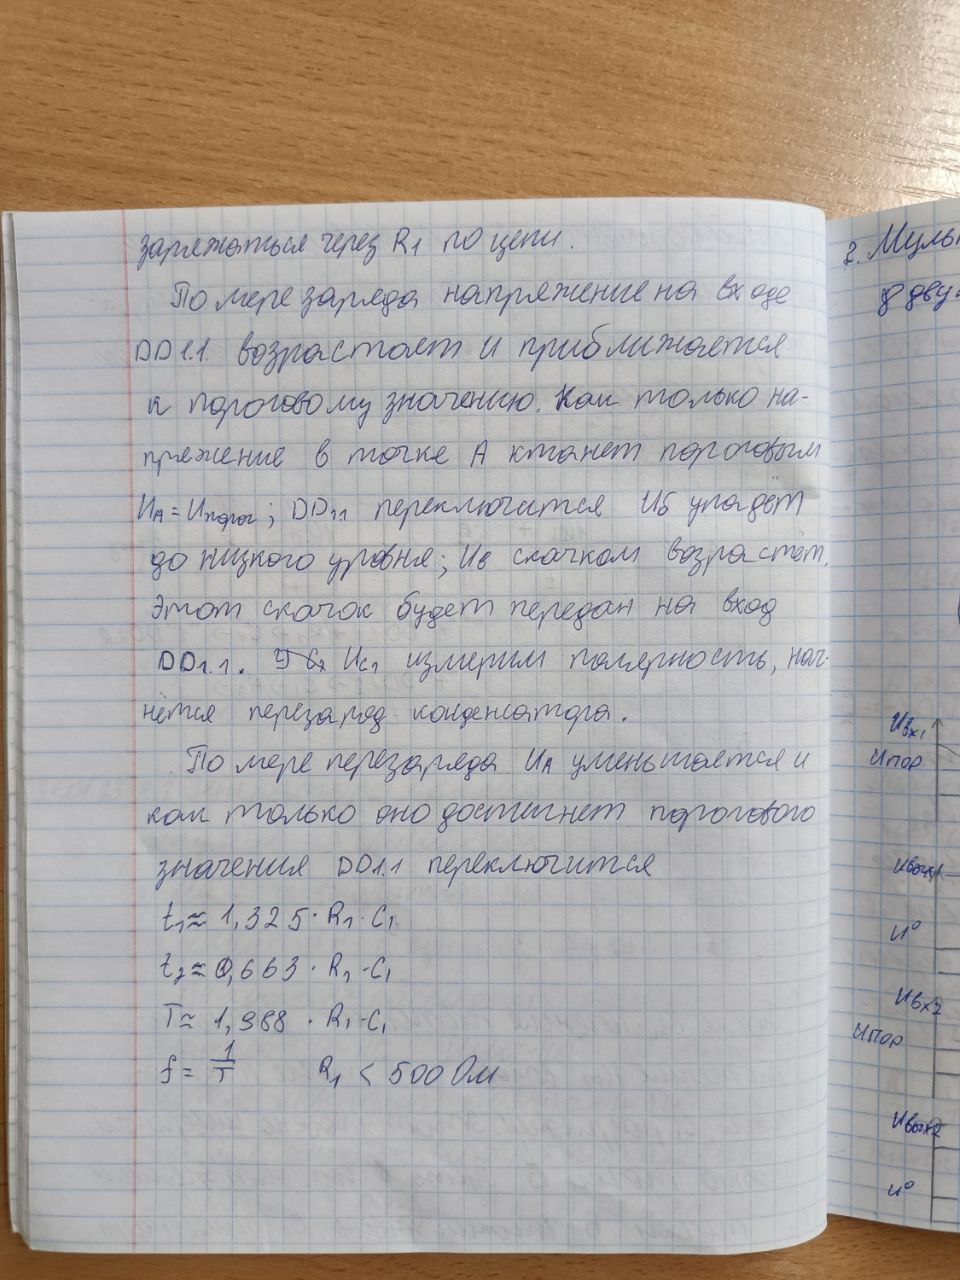 заряжаться через R1 по цепи.
По мере заряда напряжение на входе
DD1.1. возрастает и приближается
к пороговому значению. Как только на-
пряжение в точке А ктанет пороговым
UA = Uпорог; DD1.1 переключится Uб упадёт
до низкого уровня; Uв скачком возрастёт.
Этот скачок будет передан на вход
DD1.1. UC1 измерим полярность, нач-
нётся перезаряд конденсатора.
По мере перезаряда UA уменьшается и
как только оно достигнет порогового
значения DD1.1 переключится
t1 ≈ 1,325 · R1 · C1
t2 ≈ 0,663 · R1 · C1
T ≈ 1,988 · R1 · C1
f = 1/T R1 < 500 Ом
2. Муль
в дву
Uвх1
Uпор
Uвых1
U⁰
Uвх2
Uпор
Uвых2
U⁰